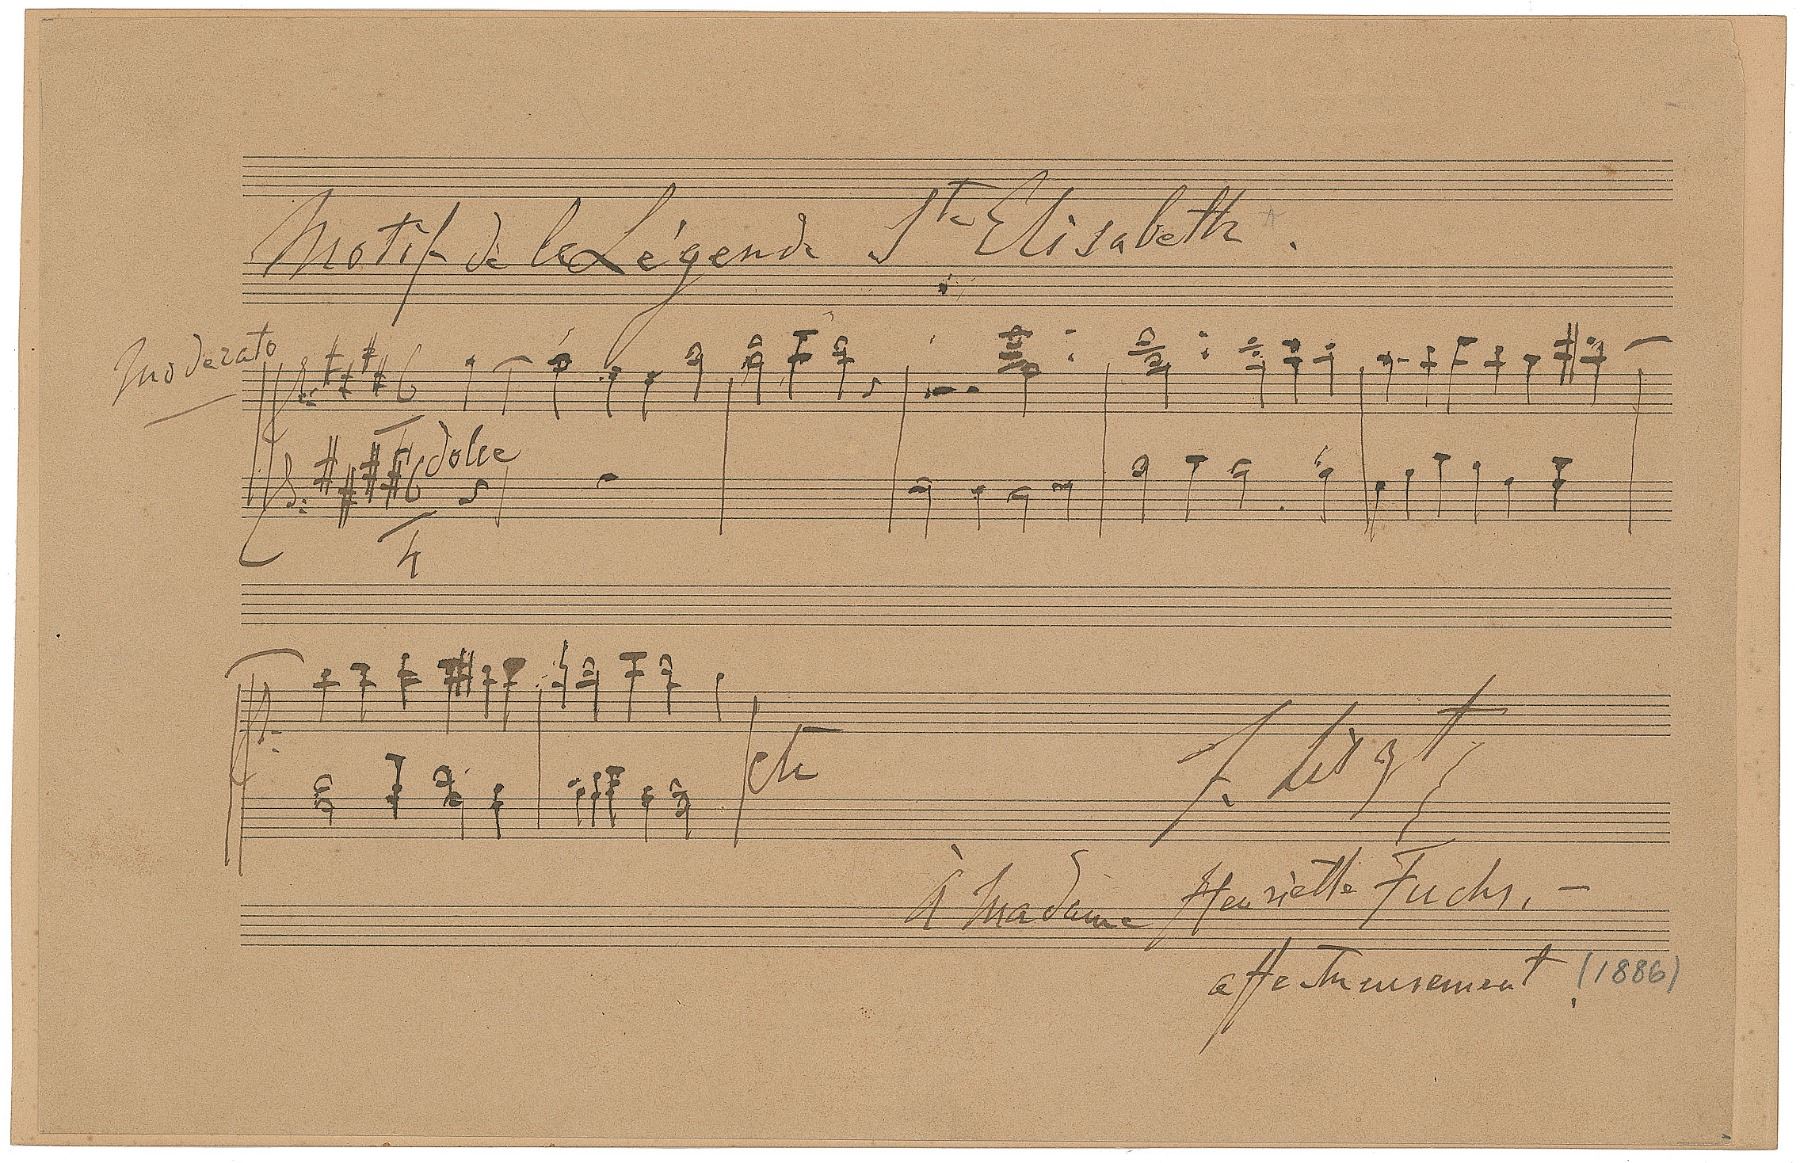 Motif de la Légende Ste Elisabeth.
Moderato
6
4
dolce
6
4
etc
F. Liszt
À Madame Henriette Fuchs, –
affectueusement. (1886)